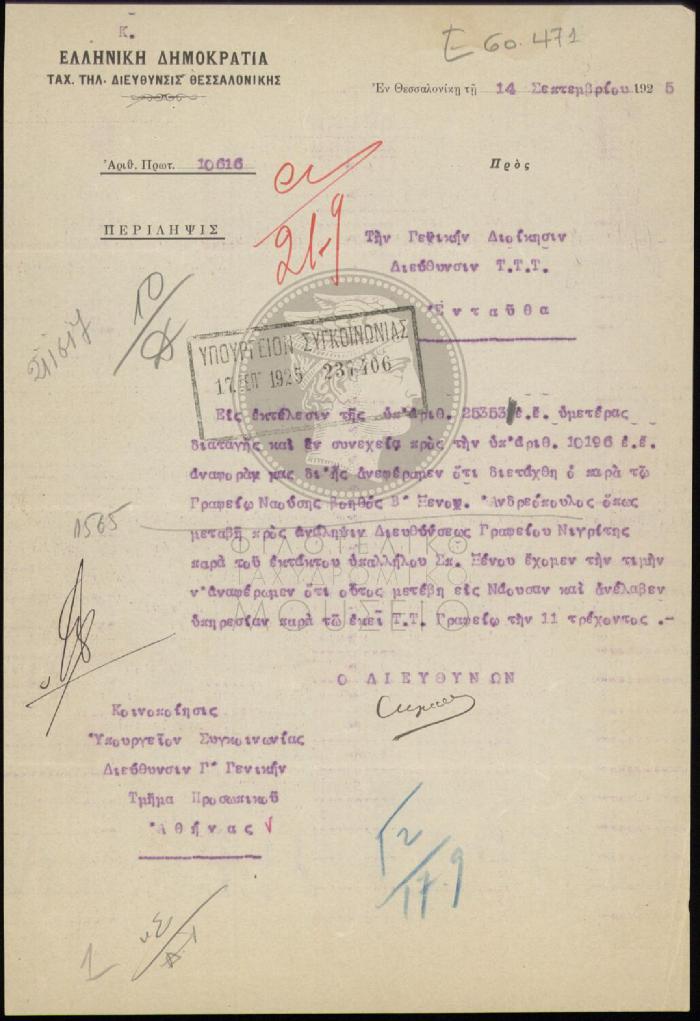 Κ.
Ε 60.471
ΕΛΛΗΝΙΚΗ ΔΗΜΟΚΡΑΤΙΑ
ΤΑΧ. ΤΗΛ. ΔΙΕΥΘΥΝΣΙΣ ΘΕΣΣΑΛΟΝΙΚΗΣ
Ἐν Θεσσαλονίκῃ τῇ 14 Σεπτεμβρίου 1925
Ἀριθ. Πρωτ. 10616
Πρὸς
ΠΕΡΙΛΗΨΙΣ
21-9
Τὴν Γενικήν Διοίκησιν
Διεύθυνσιν Τ.Τ.Τ.
Ἐνταῦθα
10
ΥΠΟΥΡΓΕΙΟΝ ΣΥΓΚΟΙΝΩΝΙΑΣ
17 ΣΕΠ 1925 237406
Εἰς ἐκτέλεσιν τῆς ὑπ'ἀριθ. 25353 ἐ.ἔ. ὑμετέρας
διαταγῆς καὶ ἐν συνεχείᾳ πρὸς τὴν ὑπ'ἀριθ. 10196 ἐ.ἔ.
ἀναφοράμ μας δι'ἧς ἀνεφέραμεν ὅτι διετάχθη ὁ παρὰ τῶ
Γραφείω Ναούσης βοηθὸς Β' Ξενοφ. Ἀνδρεόπουλος ὅπως
μεταβῆ πρὸς ἀνάληψιν Διευθύνσεως Γραφείου Νιγρίτης
παρὰ τοῦ ἐκτάκτου ὑπαλλήλου Σπ. Ξένου ἔχομεν τὴν τιμὴν
ν'ἀναφέρωμεν ὅτι οὗτος μετέβη εἰς Νάουσαν καὶ ἀνέλαβεν
ὑπηρεσίαν παρὰ τῶ ἐκεῖ Τ.Τ. Γραφείω τὴν 11 τρέχοντος .-
1565
ΦΙΛΟΤΕΛΙΚΟ
ΤΑΧΥΔΡΟΜΙΚΟ
ΜΟΥΣΕΙΟ
Ο ΔΙΕΥΘΥΝΩΝ
Κοινοποίησις
Ὑπουργεῖον Συγκοινωνίας
Διεύθυνσιν Γ' Γενικήν
Τμῆμα Προσωπικοῦ
Ἀθήνας
17.9
1